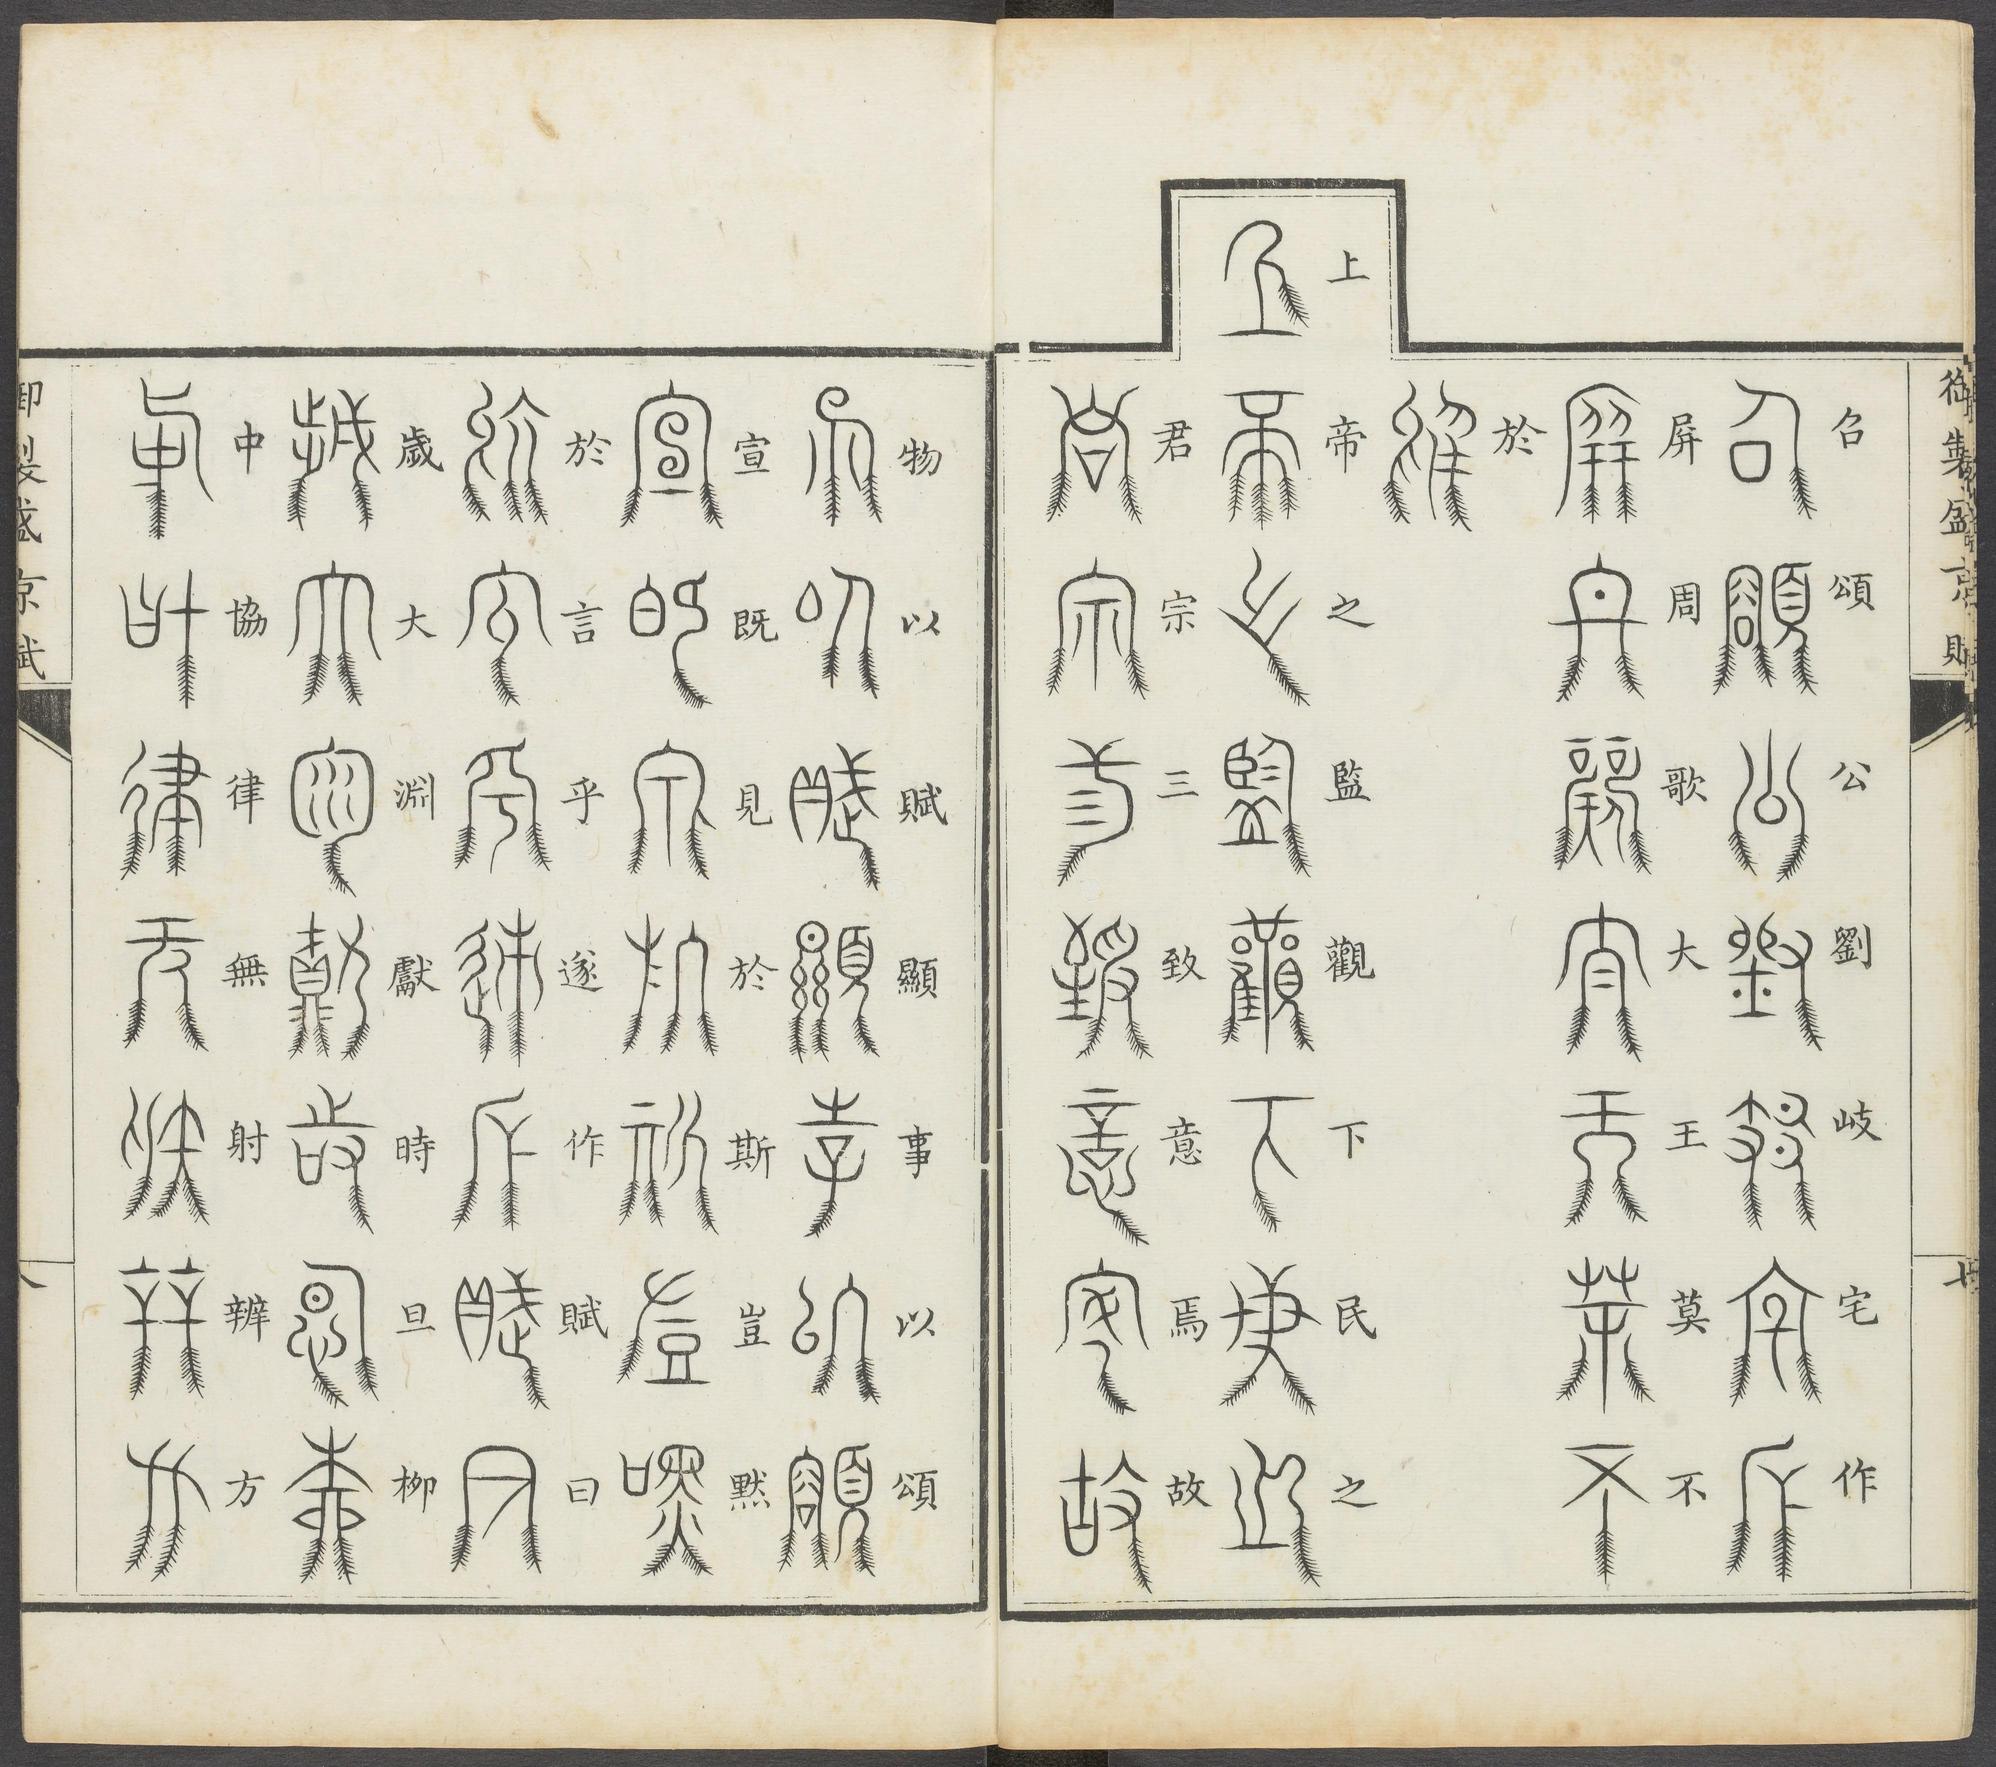 召頌公劉岐宅作
屏周歌大王莫不
於
上帝之監觀下民之
君宗三致意焉故
物以賦顯事以頌
宣既見於斯豈默
於言乎遂作賦曰
歲大淵獻時旦柳
中協律無射辨方
御製盛京賦